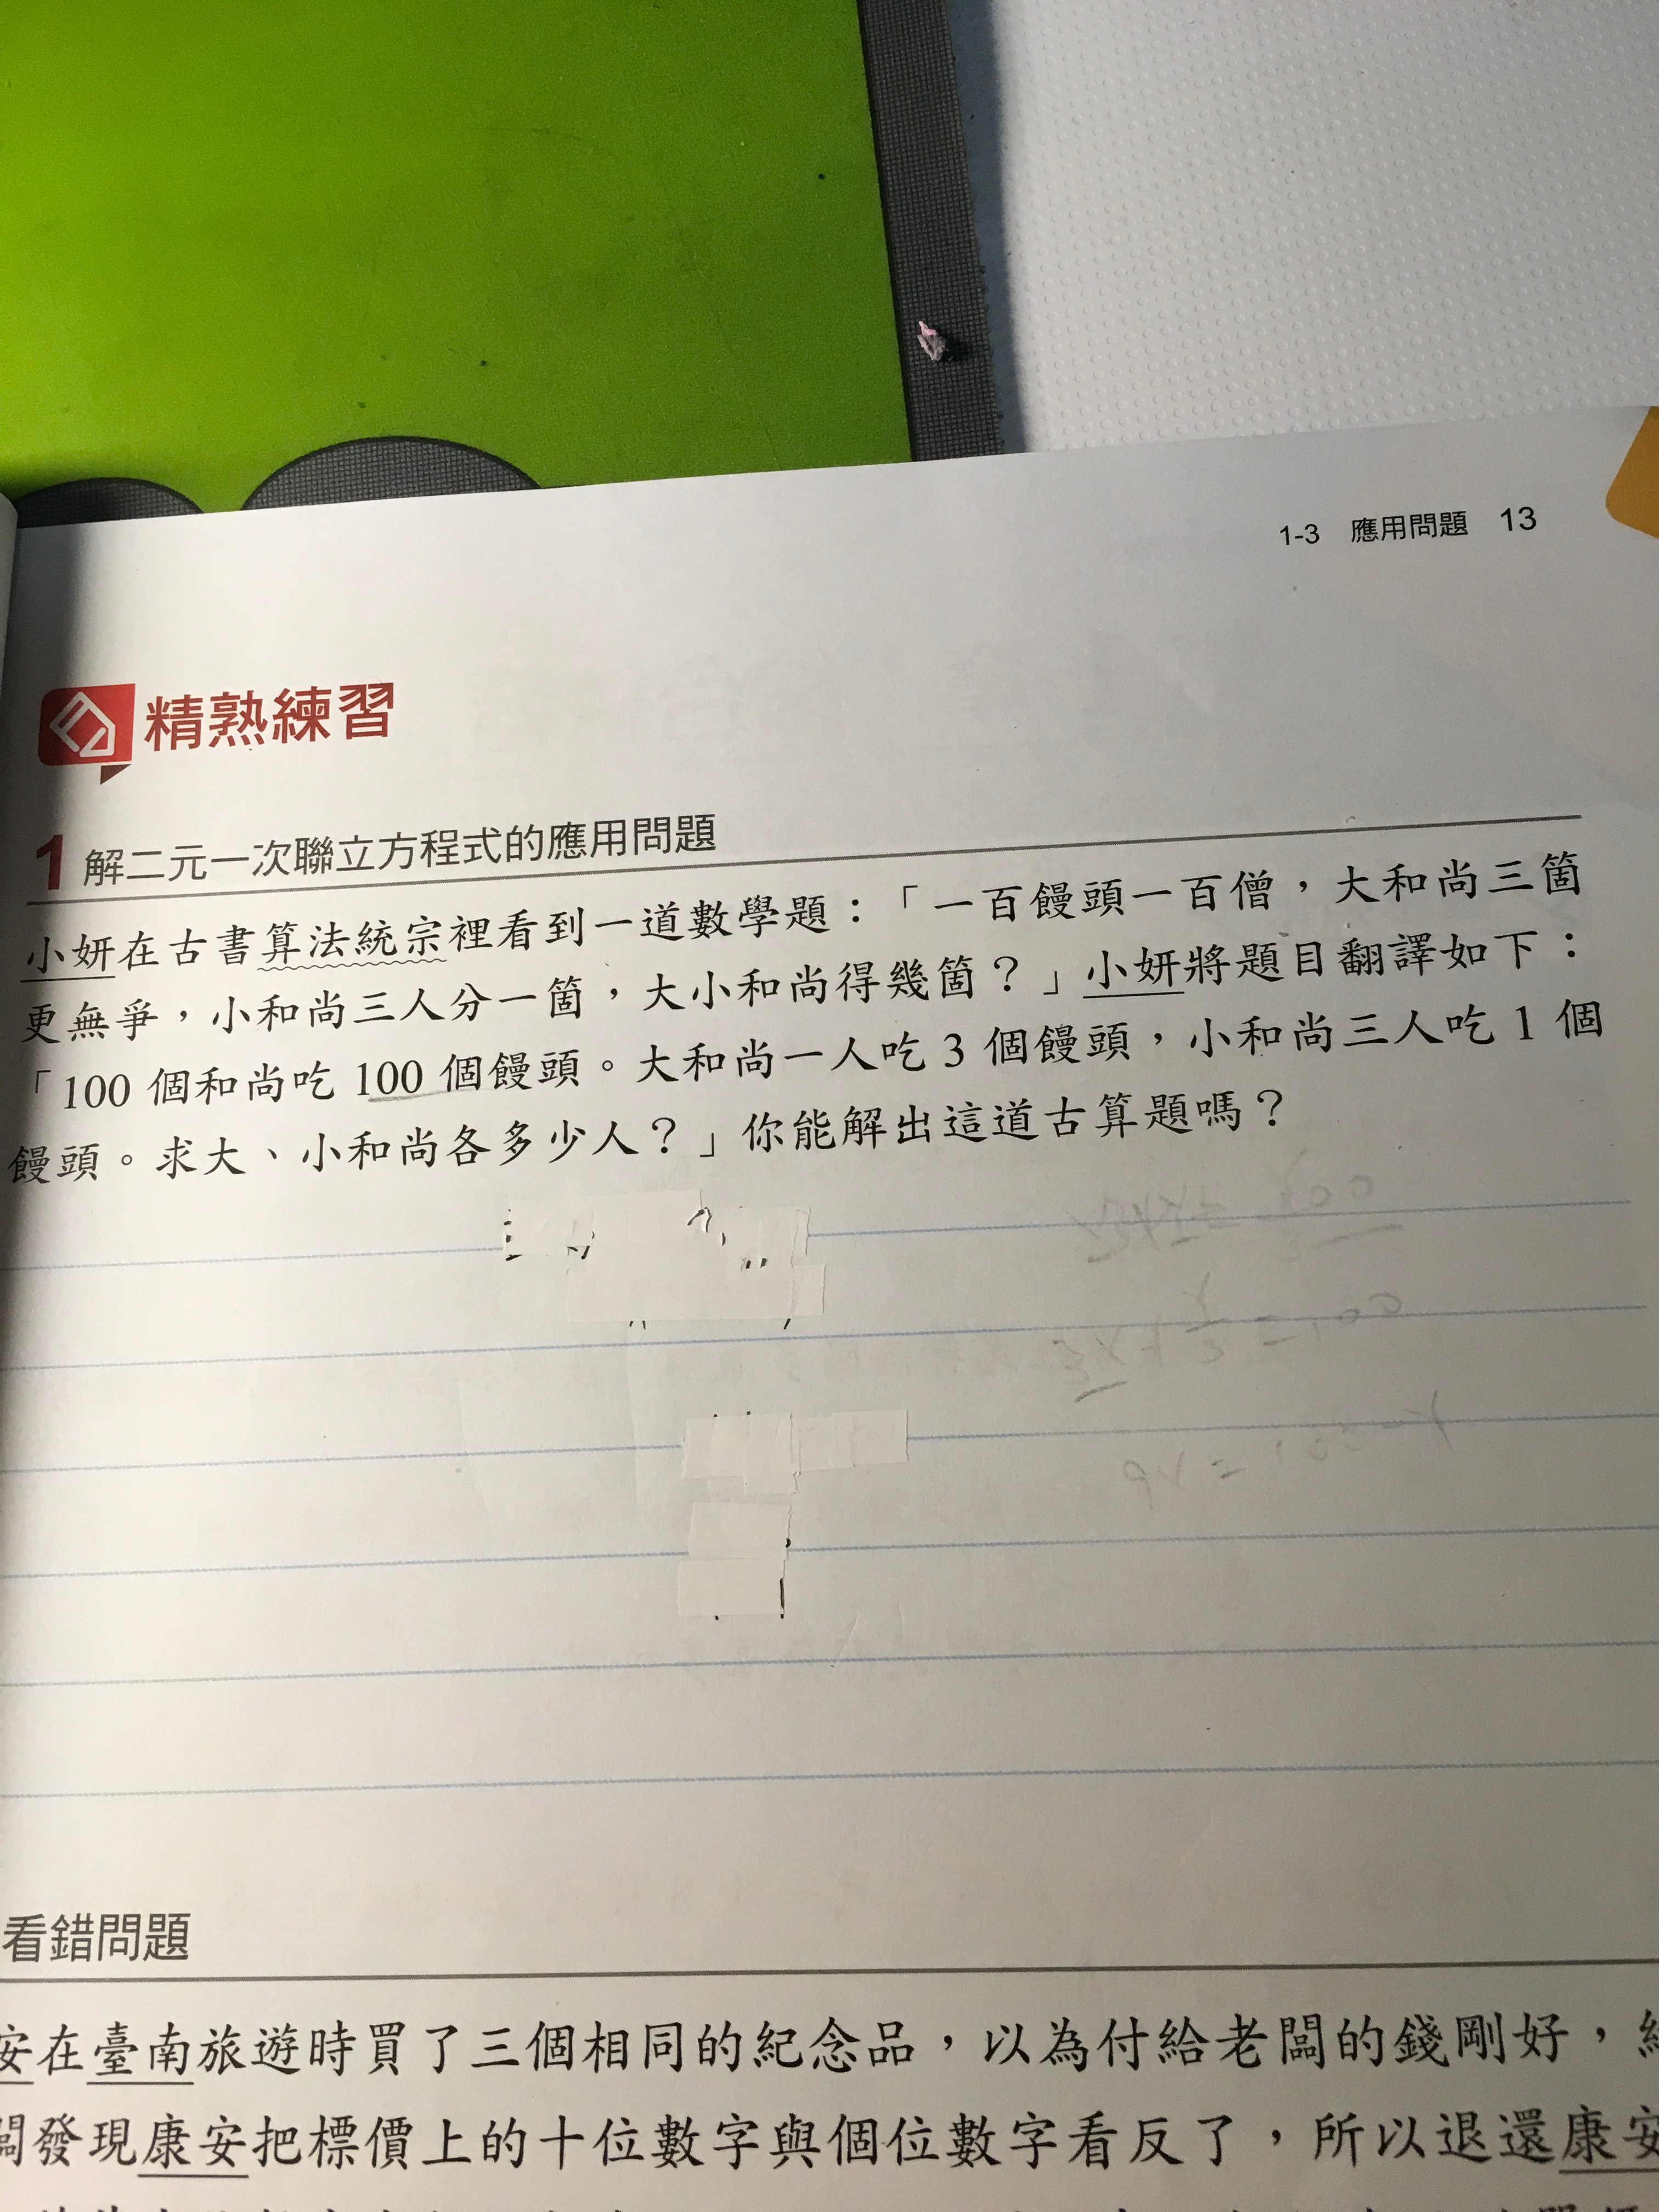 1-3 應用問題 13
精熟練習
1 解二元一次聯立方程式的應用問題
小妍在古書算法統宗裡看到一道數學題：「一百饅頭一百僧，大和尚三箇
更無爭，小和尚三人分一箇，大小和尚得幾箇？」小妍將題目翻譯如下：
「100 個和尚吃 100 個饅頭。大和尚一人吃 3 個饅頭，小和尚三人吃 1 個
饅頭。求大、小和尚各多少人？」你能解出這道古算題嗎？
看錯問題
安在臺南旅遊時買了三個相同的紀念品，以為付給老闆的錢剛好，
闆發現康安把標價上的十位數字與個位數字看反了，所以退還康安